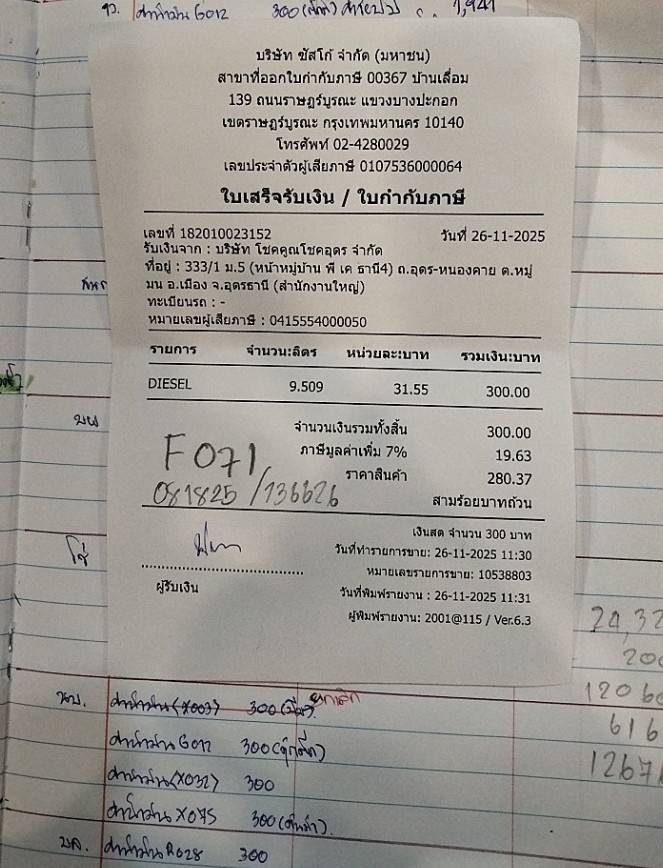 ค่าน้ำมัน G012 300 1,941
บริษัท ซัสโก้ จำกัด (มหาชน)
สาขาที่ออกใบกำกับภาษี 00367 บ้านเลื่อม
139 ถนนราษฎร์บูรณะ แขวงบางปะกอก
เขตราษฎร์บูรณะ กรุงเทพมหานคร 10140
โทรศัพท์ 02-4280029
เลขประจำตัวผู้เสียภาษี 0107536000064
ใบเสร็จรับเงิน / ใบกำกับภาษี
เลขที่ 182010023152 วันที่ 26-11-2025
รับเงินจาก : บริษัท โชคคูณโชคอุดร จำกัด
ที่อยู่ : 333/1 ม.5 (หน้าหมู่บ้าน พี เค ธานี4) ถ.อุดร-หนองคาย ต.หมู่
มน อ.เมือง จ.อุดรธานี (สำนักงานใหญ่)
ทะเบียนรถ : -
หมายเลขผู้เสียภาษี : 0415554000050
รายการ จำนวน:ลิตร หน่วยละ:บาท รวมเงิน:บาท
DIESEL 9.509 31.55 300.00
จำนวนเงินรวมทั้งสิ้น 300.00
ภาษีมูลค่าเพิ่ม 7% 19.63
ราคาสินค้า 280.37
F071
081825/136626
สามร้อยบาทถ้วน
เงินสด จำนวน 300 บาท
วันที่ทำรายการขาย: 26-11-2025 11:30
หมายเลขรายการขาย: 10538803
ผู้รับเงิน
วันที่พิมพ์รายงาน : 26-11-2025 11:31
ผู้พิมพ์รายงาน: 2001@115 / Ver.6.3
24,32
200
1206
616
1267
ค่าน้ำมัน (X003) 300 ยกเลิก
ค่าน้ำมัน G012 300
ค่าน้ำมัน (X032) 300
ค่าน้ำมัน X075 300
ค่าน้ำมัน R028 300